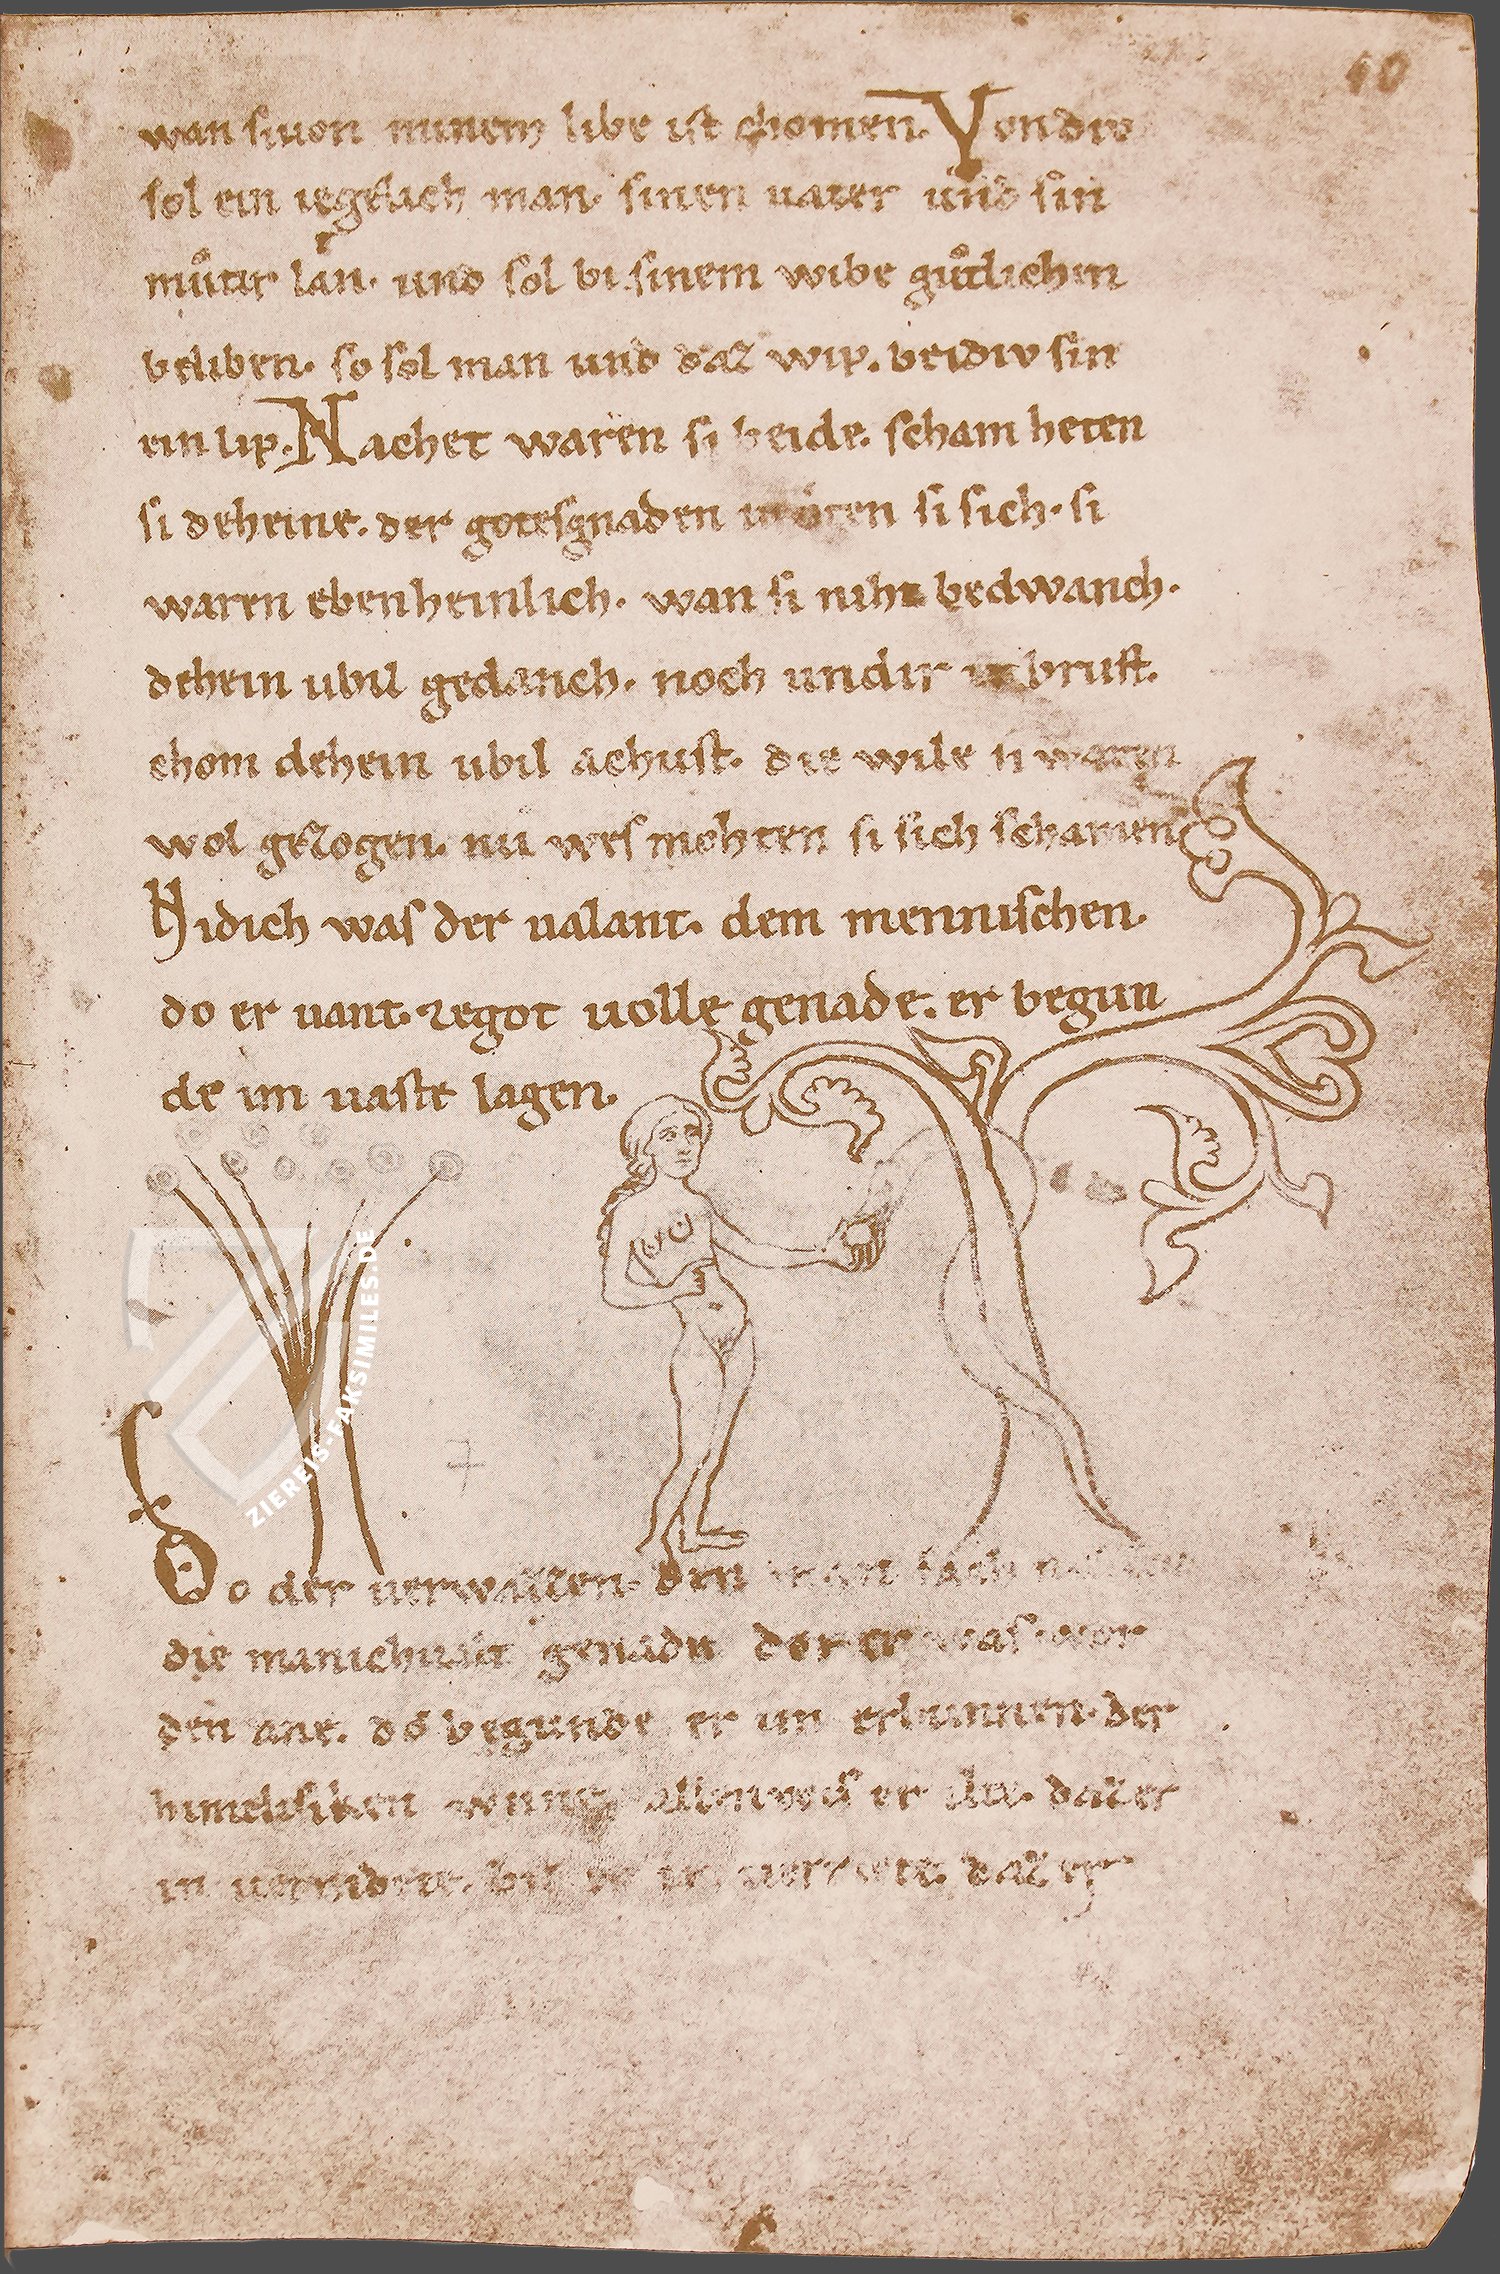 10
wan si uon minem libe ist chomen. Von div
sol ein iegelich man. sinen uater und sin
můtir lân. und sol bi sinem wibe gůtlichin
beliben. so sol man und daz wip. beidiv sin
ein lip. Nachet waren si beide. scham heten
si deheine. der gotes gnaden si sich. si
waren ebenheinlich. wan si niht bedwanch.
dehein ubil gedanch. noch undir ir brust.
chom dehein ubil âchust. die wile si waren
wol gezogen. nu wes mohten si sich schamen
Nidich was der ualant. dem mennischen.
do er uant. ze got uolle genade. er begun
de im uaste lagen.
Do der uerwazzen. den sach
die manichualt genade der er was wor
den ane. do begunde er im erbunnen. der
himelisken wunne er daz er
in daz er
ZIEREIS-FAKSIMILES.DE